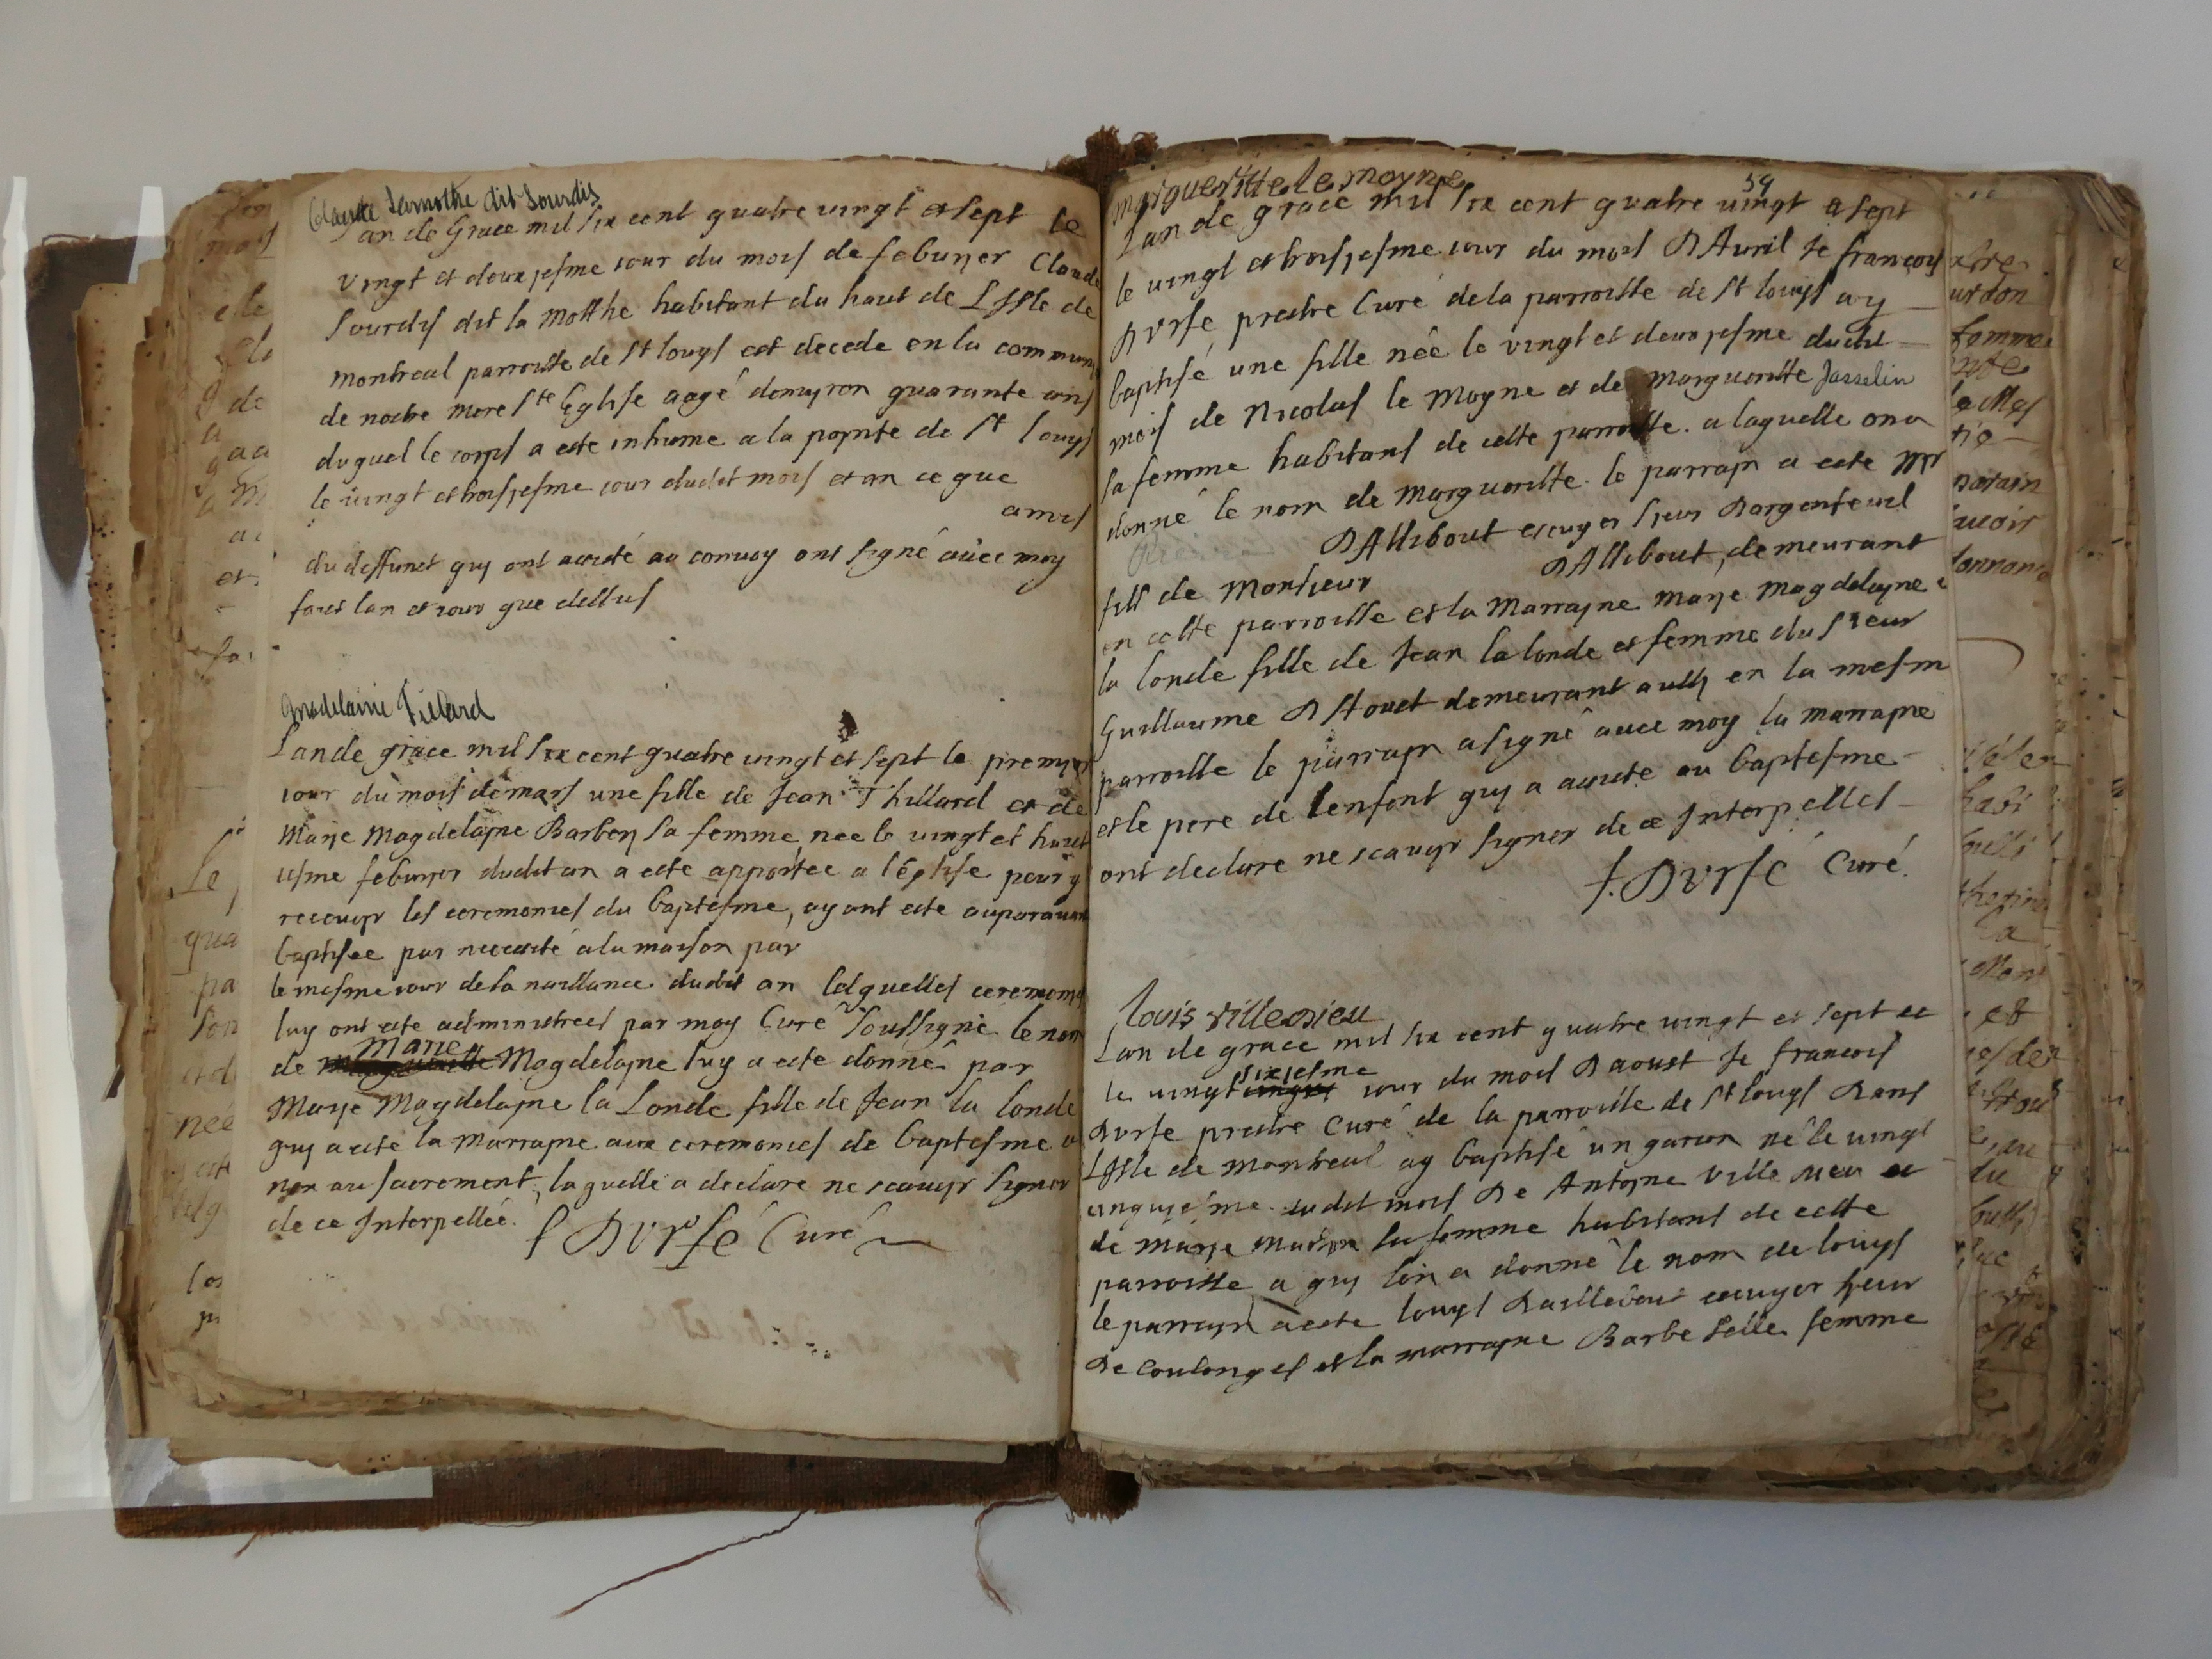 Claude Lamothe dit Sourdis
Lan de Grace mil six cent quatre vingt et sept le
vingt et deuxjesme jour du mois de feburjer Claude
Sourdis dit la Motthe habitant du haut de L Isle de
Montreal parroisse de St louys est decede en la commun
de nostre mere Ste Eglise aagé demyron quarante ans
duquel le corps a este inhume a la poynte de St louys
le vingt et troisjesme jour dudit mois et an ce que
amis
du deffunct quy ont assisté au convoy ont signé avec moy
fait lan et jour que dessus
Madelaine Tillard
Lan de grace mil six cent quatre vingt et sept le premyer
jour du mois de mars une fille de Jean Thillard et de
Marje Magdelayne Barbery sa femme nee le vingt et huict
jesme feburyer dudit an a este apportee a l'Eglise pour y
recevoyr les ceremonies du baptesme, ayant este auparavant
baptisee par necessité a la maison par
le mesme jour de sa naissance dudit an lesquelles ceremonies
luy ont este administrees par moy Curé soussigné le nom
de Marie Magdelayne luy a este donné par
Marje Magdelayne la Londe fille de Jean la londe
quy a este la Marrayne aux ceremonies de baptesme
non au sacrement, laquelle a declare ne scavoyr signer
de ce Interpellée.
f Dvrfé Curé
59
Margueritte le moyne
Lan de grace mil six cent quatre vingt et sept
le vingt et troisjesme jour du mois D Avril Je francois
Dvrfe prestre Curé de la parroisse de St louys ay
baptisé une fille née le vingt et deuxjesme dudit
mois de Nicolas le Moyne et de Margueritte Jasselin
sa femme habitans de cette parroisse. a laquelle on a
donné le nom de Margueritte. le parrayn a este Mr
D Allibout escuyer sieur Dargenteuil
fils de Monsieur D Allibout, demeurant
en cette parroisse et la Marrayne Marje Magdelayne
la londe fille de Jean la londe et femme du sieur
Guillaume D Stouet demeurant aussy en la mesm
parroisse le parrayn a signé avec moy la marrayne
et le pere de lenfant quy a assisté au baptesme
ont declare ne scavoyr signer de ce Interpelles
f. Dvrfé Curé.
louis villedieu
Lan de grace mil six cent quatre vingt et sept
le vingt sixjesme jour du mois Daoust Je francois
Dvrfe prestre Curé de la parroisse de St louys Dans
L Isle de Montreal ay baptisé un garcon né le vingt
cinquyéme dudit mois De Antoyne Ville dieu et
de Marje sa femme habitans de cette
parroisse a quy lon a donné le nom de louys
le parrayn a este louys Daillebout escuyer sieur
De Coulonges et la marrayne Barbe selle femme